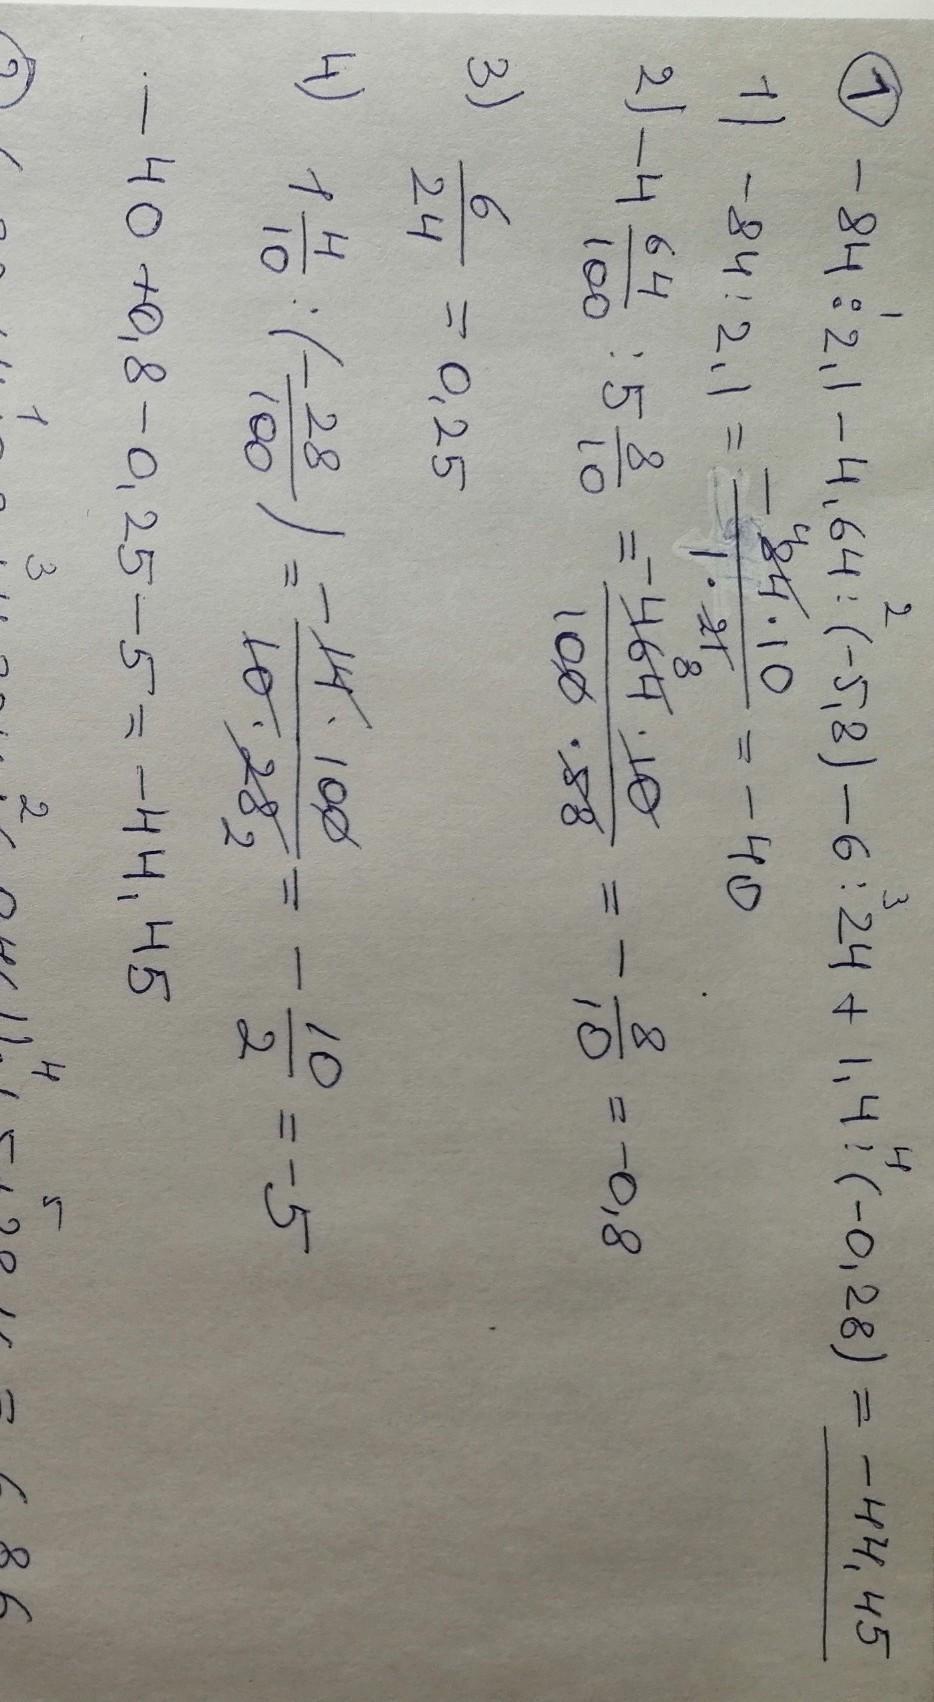 ① -84 : 2,1 - 4,64 : (-5,8) - 6 : 24 + 1,4 : (-0,28) = -44,45
1 2 3 4
1) -84 : 2,1 = - 84 · 10 / 1 · 21 = -40
4
2) -4 64/100 : 5 8/10 = -464 · 10 / 100 · 58 = - 8/10 = -0,8
8
3) 6/24 = 0,25
4) 1 4/10 : (- 28/100) = - 14 · 100 / 10 · 28 = - 10/2 = -5
2
- 40 + 0,8 - 0,25 - 5 = -44,45
1 3 2 4 5